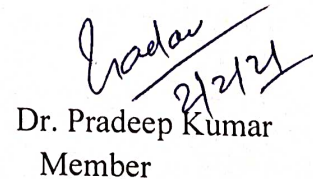 2/2/21
Dr. Pradeep Kumar
Member